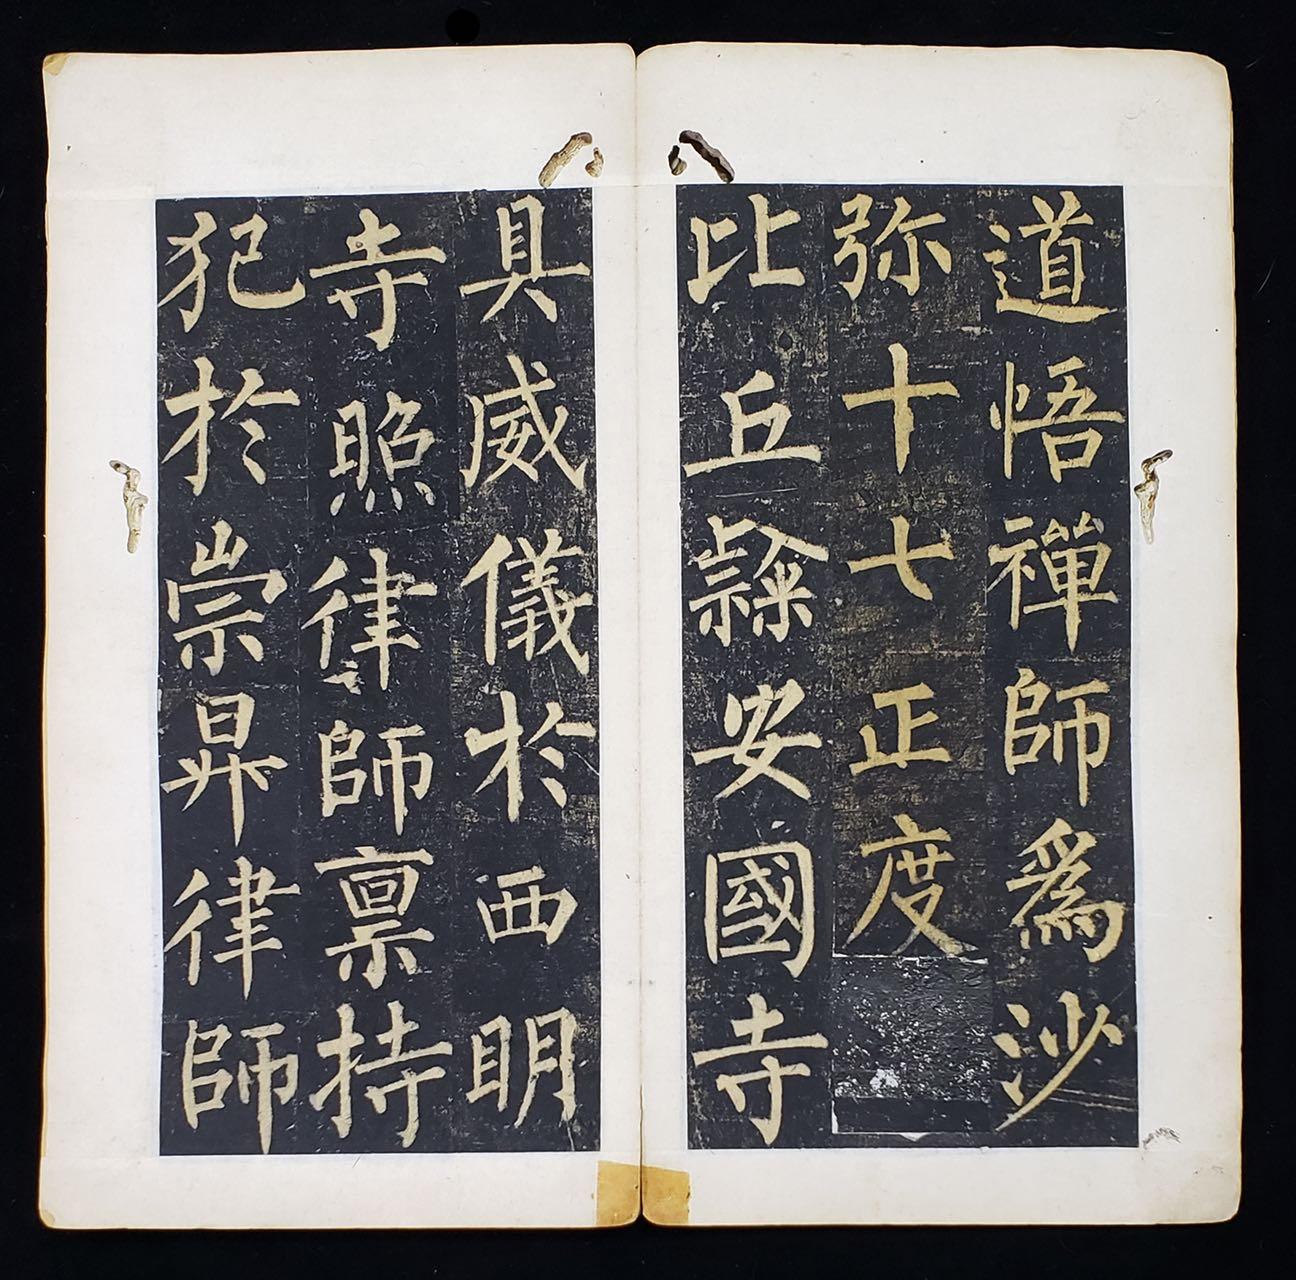 道悟禪師為沙
弥十七正度
比丘隸安國寺
具威儀於西明
寺照律師禀持
犯於崇昇律師